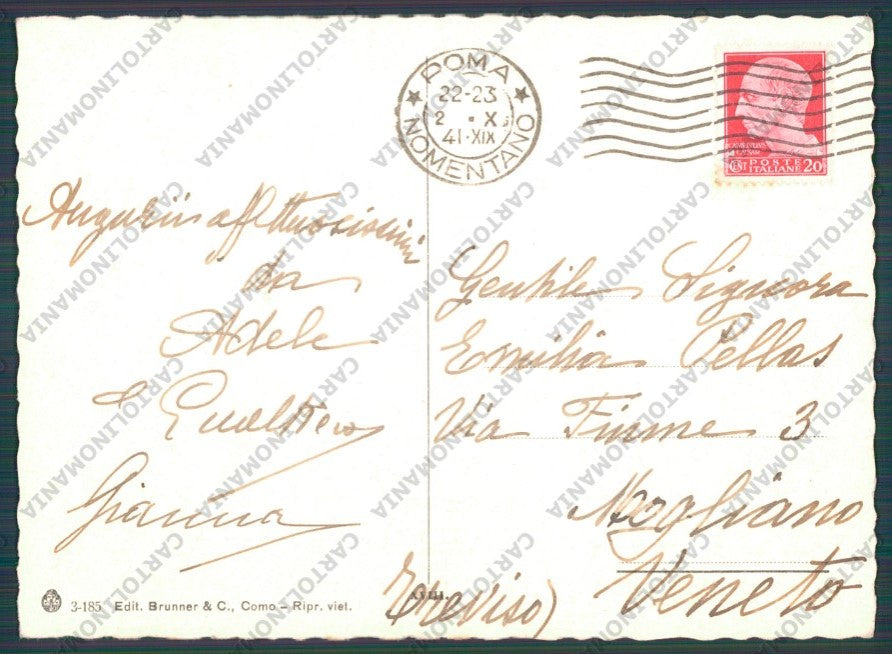 ROMA
22-23
2 · X
41·XIX
NOMENTANO
POSTE
ITALIANE
CENT 20
Augurii affettuosissimi
da
Adele
Gualtiero
Gianna
Gentile Signora
Emilia Pellas
Via Fiume 3
Mogliano
Veneto
(Treviso)
3-185 Edit. Brunner & C., Como – Ripr. viet.
XVIII.
CARTOLINOMANIA